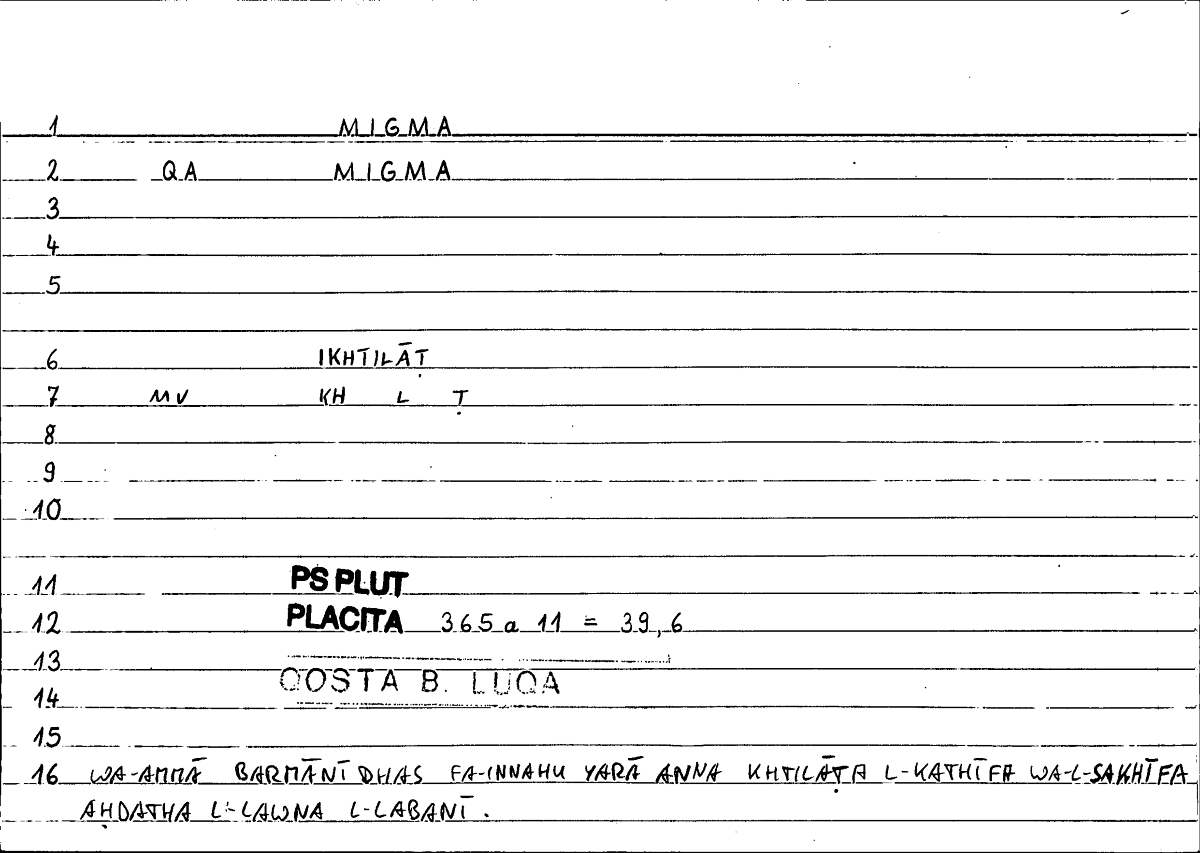 1 MIGMA
2 QA MIGMA
3
4
5
6 IKHTILĀṬ
7 MV KH L Ṭ
8
9
10
11 PS PLUT
12 PLACITA 365 a 11 = 39,6
13
QOSTA B. LUQA
14
15
16 WA-AMMĀ BARMĀNĪDHAS FA-INNAHU YARĀ ANNA KHTILĀṬA L-KATHĪFA WA-L-SAKHĪFA
AḤDATHA L-LAWNA L-LABANĪ.